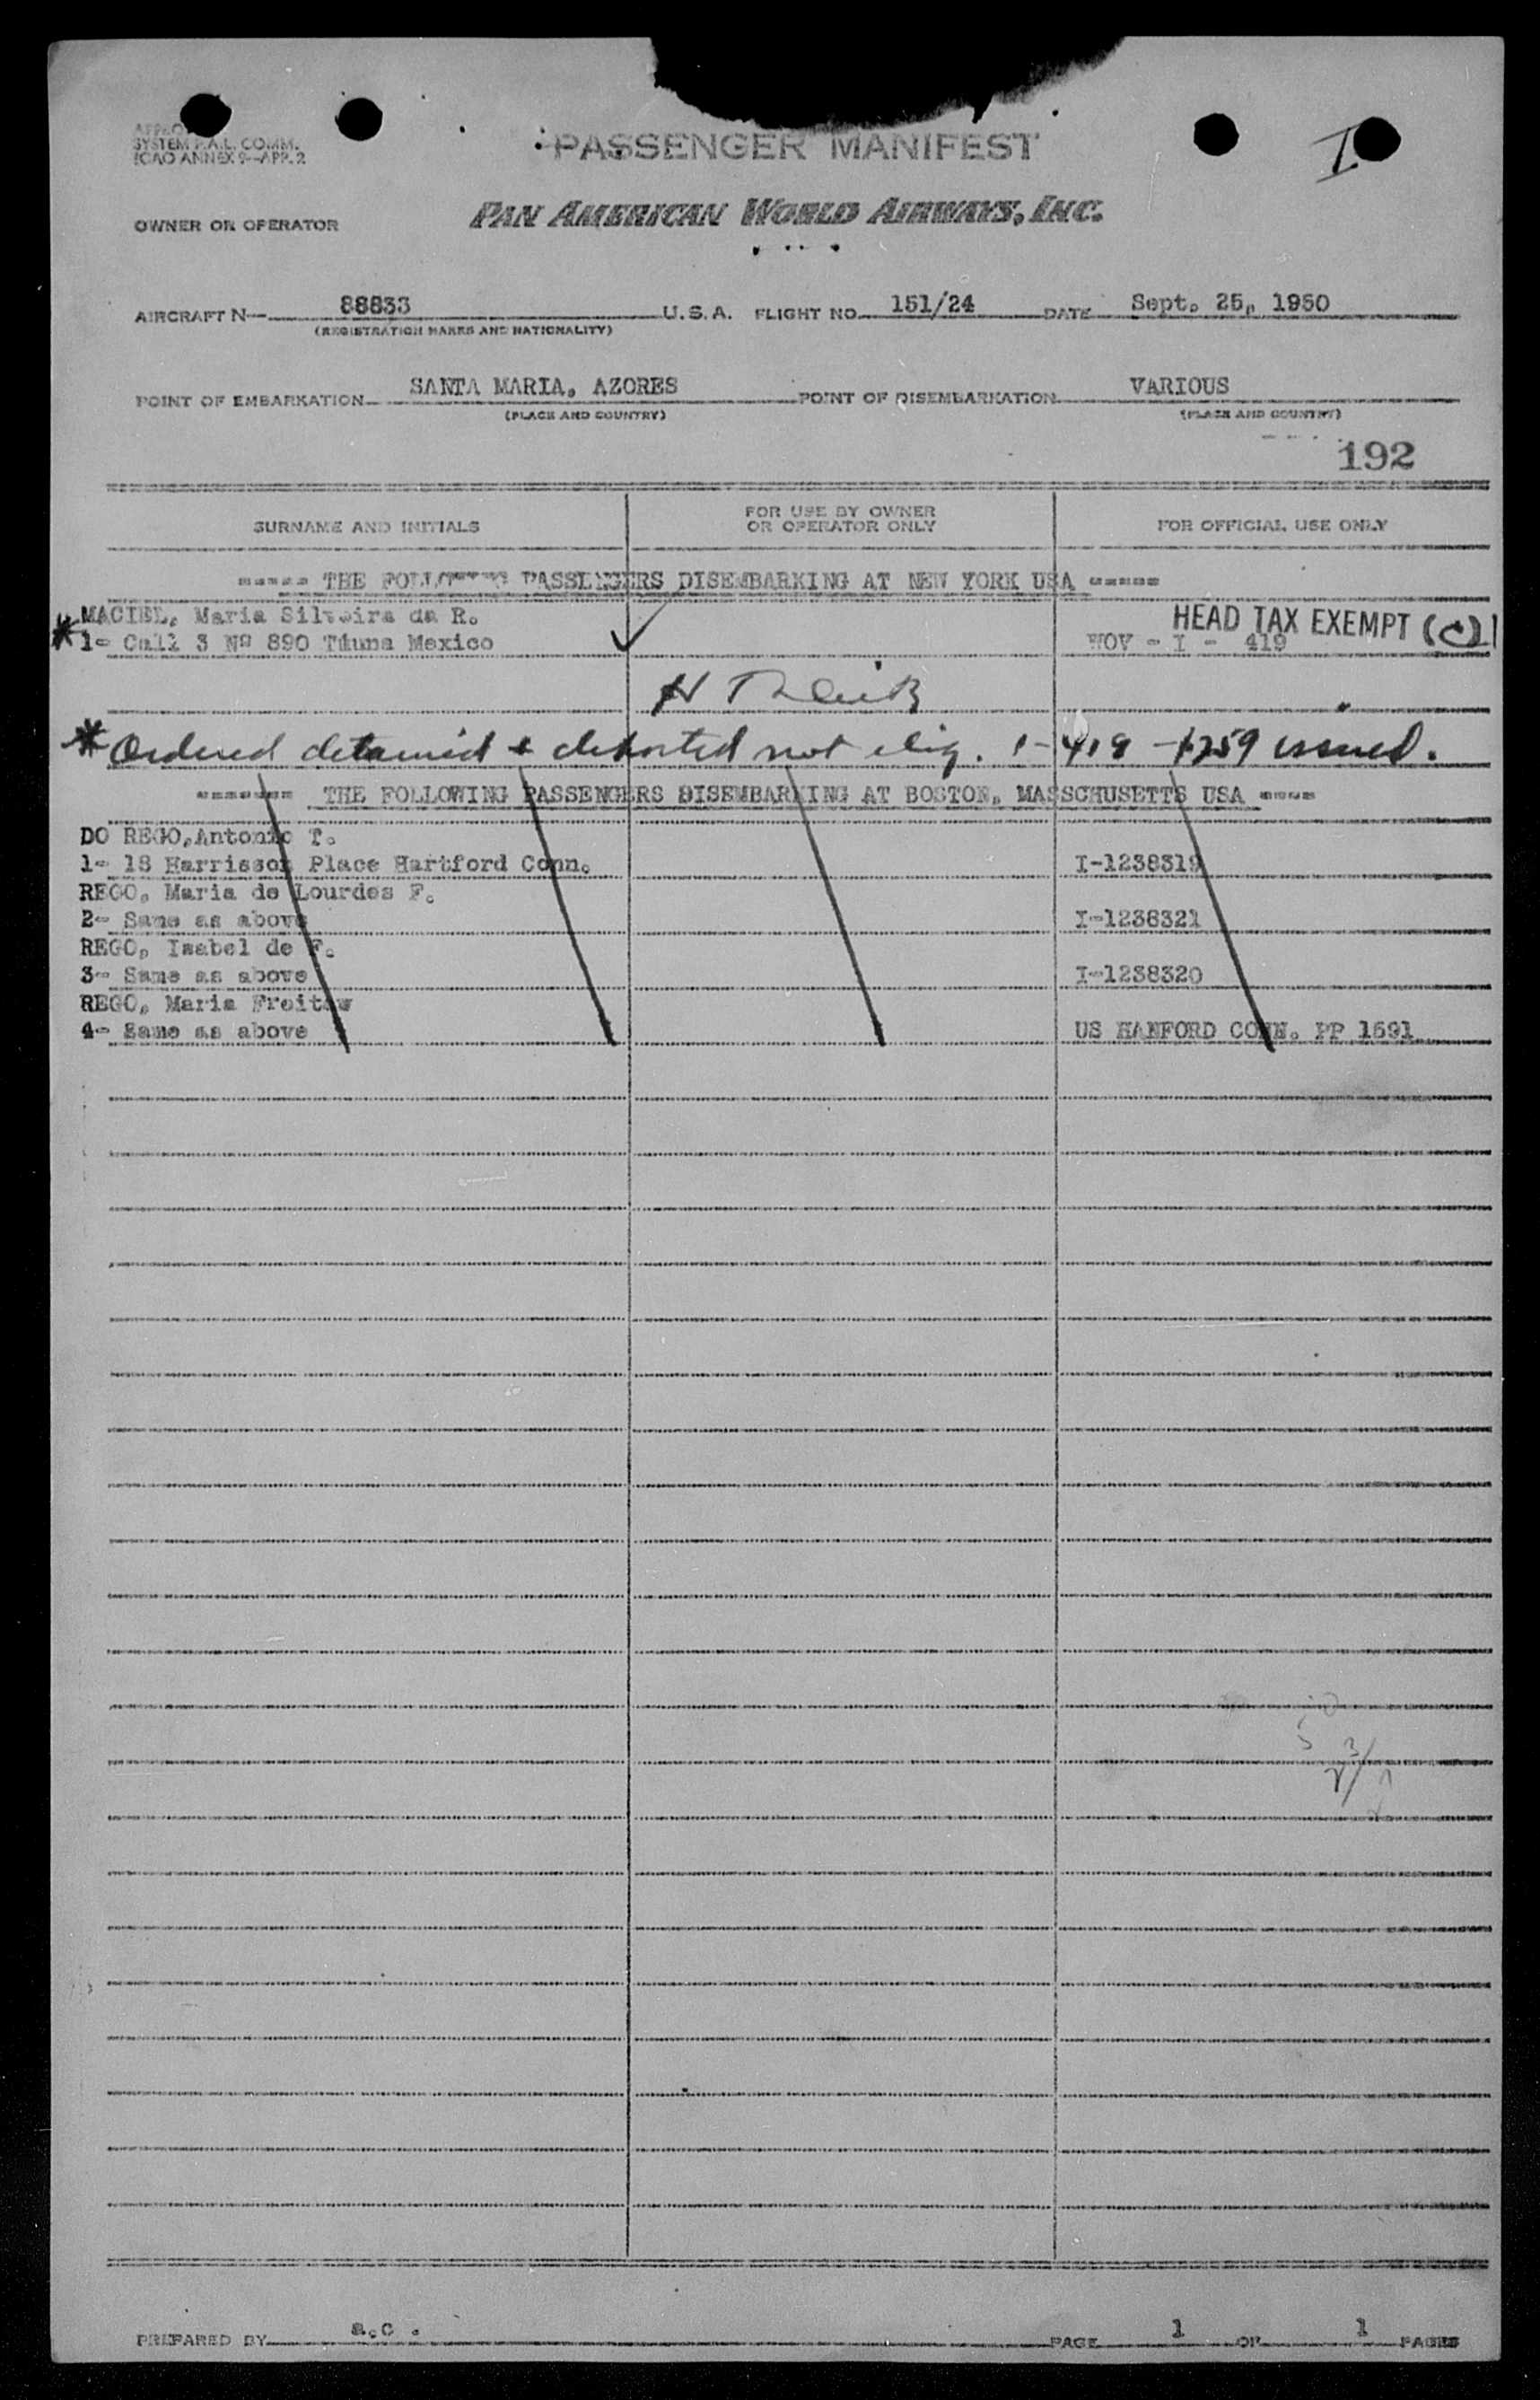 SYSTEM P.A.L. COMM.
ICAO ANNEX 9—APP. 2
PASSENGER MANIFEST
I
OWNER OR OPERATOR
PAN AMERICAN WORLD AIRWAYS, INC.
AIRCRAFT N— 88833 U.S.A. FLIGHT NO. 151/24 DATE Sept. 25, 1950
(REGISTRATION MARKS AND NATIONALITY)
POINT OF EMBARKATION SANTA MARIA, AZORES POINT OF DISEMBARKATION VARIOUS
(PLACE AND COUNTRY) (PLACE AND COUNTRY)
192
SURNAME AND INITIALS FOR USE BY OWNER OR OPERATOR ONLY FOR OFFICIAL USE ONLY
----- THE FOLLOWING PASSENGERS DISEMBARKING AT NEW YORK USA -----
MACIEL, Maria Silveira da R. HEAD TAX EXEMPT (C)
* 1- Call 3 Nº 890 Mexico NOV - I - 419
H
* Ordered detained & deported not elig. I-419 - I-259 issued.
------- THE FOLLOWING PASSENGERS DISEMBARKING AT BOSTON, MASSCHUSETTS USA ----
DO REGO, Antonio T.
1- 18 Harrisson Place Hartford Conn. I-1238319
REGO, Maria de Lourdes F.
2- Same as above I-1238321
REGO, Isabel de F.
3- Same as above I-1238320
REGO, Maria Freitaw
4- Same as above US HANFORD CONN. PP 1691
PREPARED BY a.c. PAGE 1 OF 1 PAGES